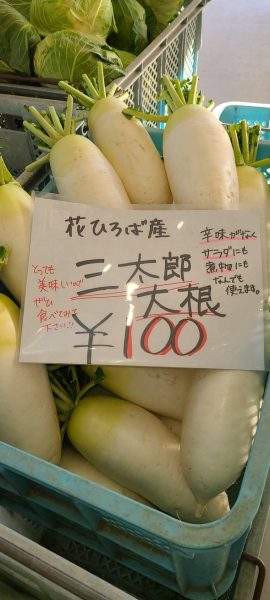 花ひろば産
三太郎
大根
¥100
とっても
美味しいので
ぜひ
食べてみて
下さい!!
辛味がなく
サラダにも
煮物にも
なんでも
使えます。